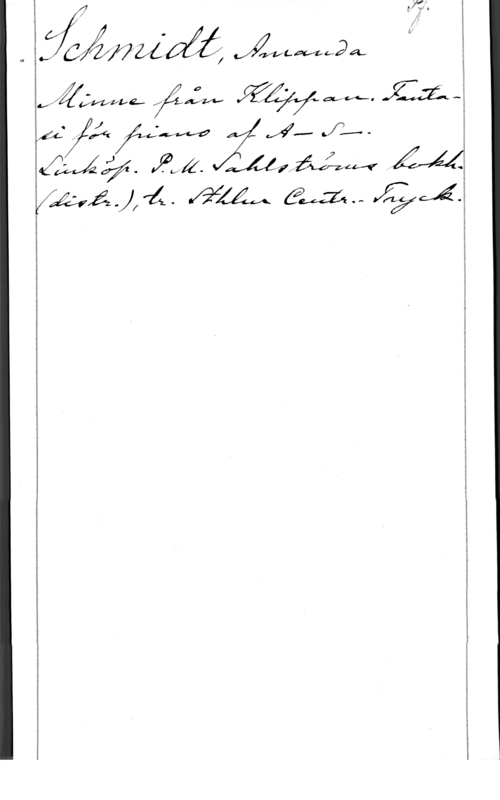 Pf.
Schmidt, Amanda
Minne från Klippan. Fanta-
si för piano af A– S–.
Linköp. P. M. Sahlströms bokh.
(distr.), tr. Sthlm Centr.- Tryck.